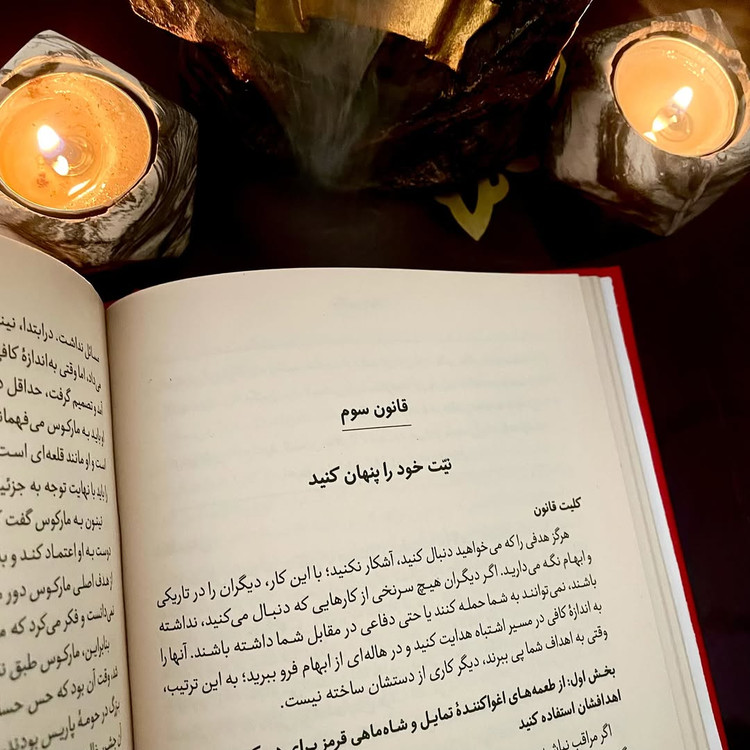 قانون سوم
نیّت خود را پنهان کنید
کلیت قانون
هرگز هدفی را که می‌خواهید دنبال کنید، آشکار نکنید؛ با این کار، دیگران را در تاریکی
و ابهام نگه می‌دارید. اگر دیگران هیچ سرنخی از کارهایی که دنبال می‌کنید، نداشته
باشند، نمی‌توانند به شما حمله کنند یا حتی دفاعی در مقابل شما داشته باشند. آنها را
به اندازهٔ کافی در مسیر اشتباه هدایت کنید و در هاله‌ای از ابهام فرو ببرید؛ به این ترتیب،
وقتی به اهداف شما پی ببرند، دیگر کاری از دستشان ساخته نیست.
بخش اول: از طعمه‌های اغواکنندهٔ تمایل و شاه‌ماهی قرمز برای
اهدافشان استفاده کنید
اگر مراقب
مسائل نداشت. در ابتدا،
می‌داد، اما وقتی به‌اندازهٔ
آمد و تصمیم گرفت، حداقل
او باید به مارکوس
است و او مانند قلعه‌ای است
را باید با نهایت توجه به
نینون به مارکوس گفت
دوست به او اعتماد کند و
از هدف اصلی مارکوس دور
نمی‌دانست و فکر می‌کرد که
بنابراین، مارکوس طبق
شد، وقت آن بود که حس
بزرگ در حومهٔ پاریس بودند